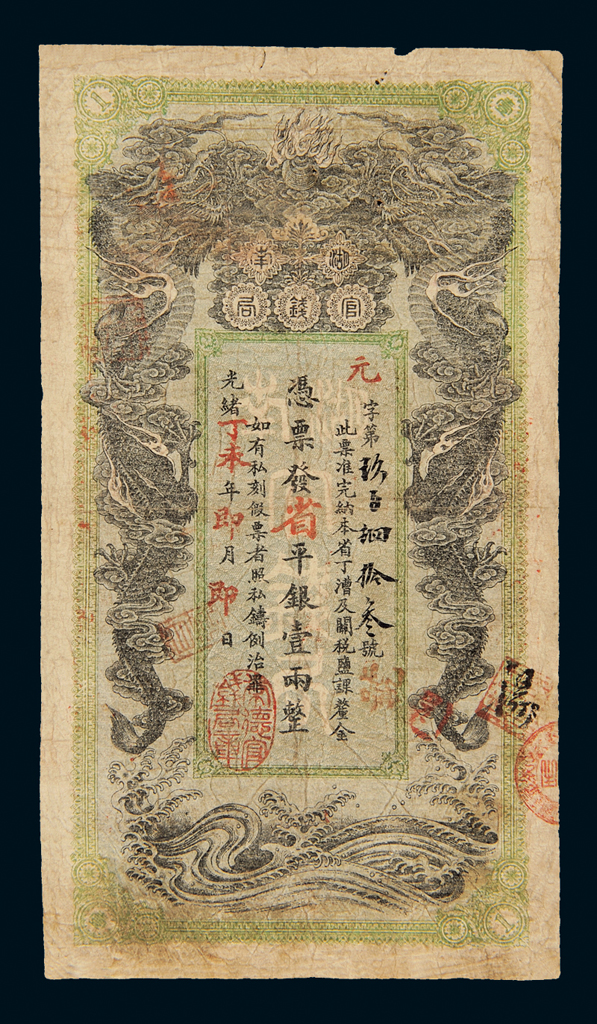 湖南
官錢局
元字第玖百肆拾叁號
此票准完納本省丁漕及關稅鹽課釐金
憑票發省平銀壹兩整
如有私刻假票者照私鑄例治罪
光緒丁未年即月即日
1
1